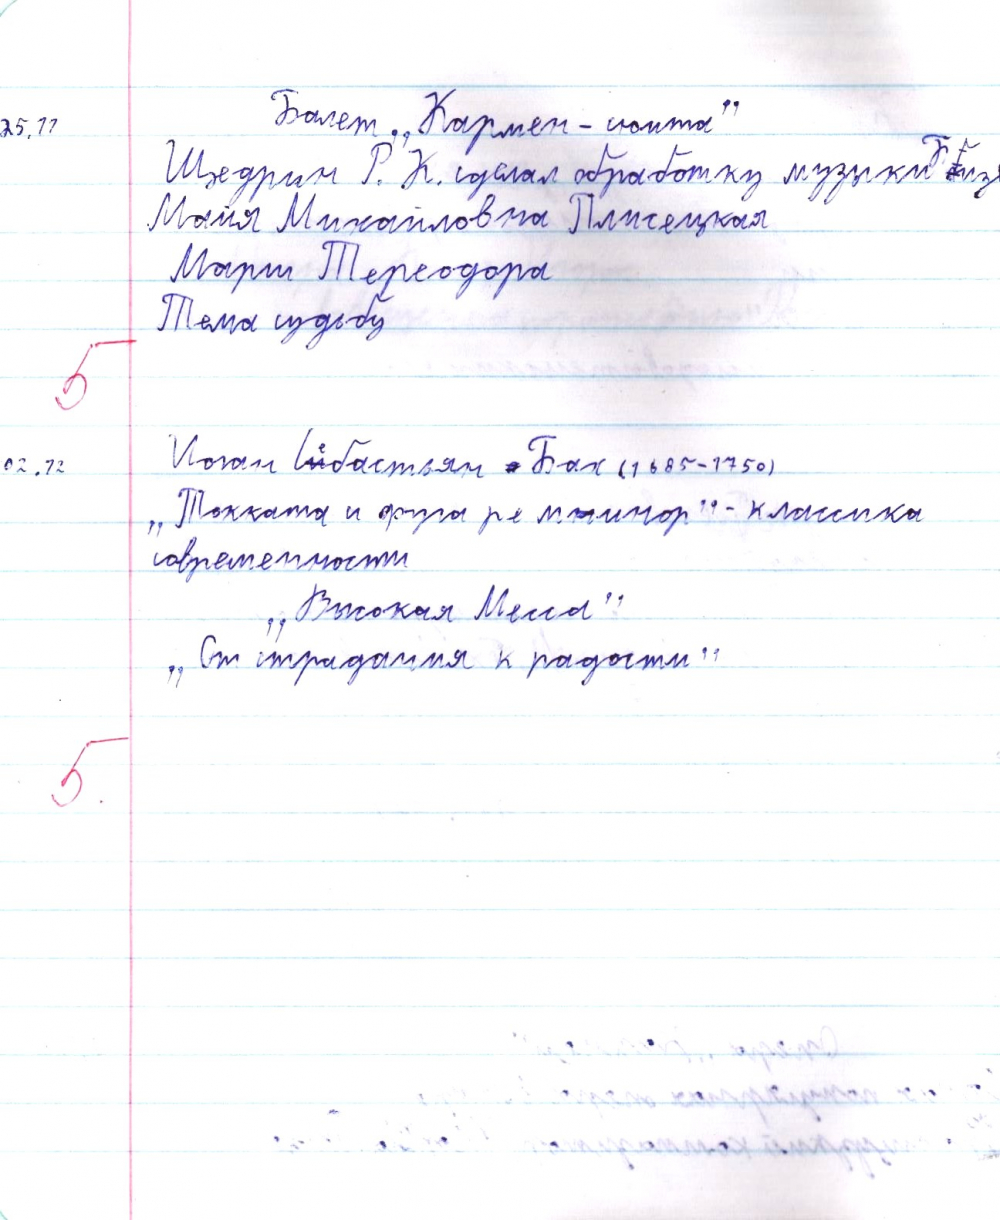 25.11
Балет „Кармен - сюита”
Щедрин Р. К. сделал обработку музыки Бизе
Майя Михайловна Плисецкая
Марш Тереодора
Тема судьбы
5
02.12
Иоган Себастьян Бах (1685-1750)
„Токката и фуга ре минор” - классика
современности
„Высокая Месса”
„От страдания к радости”
5